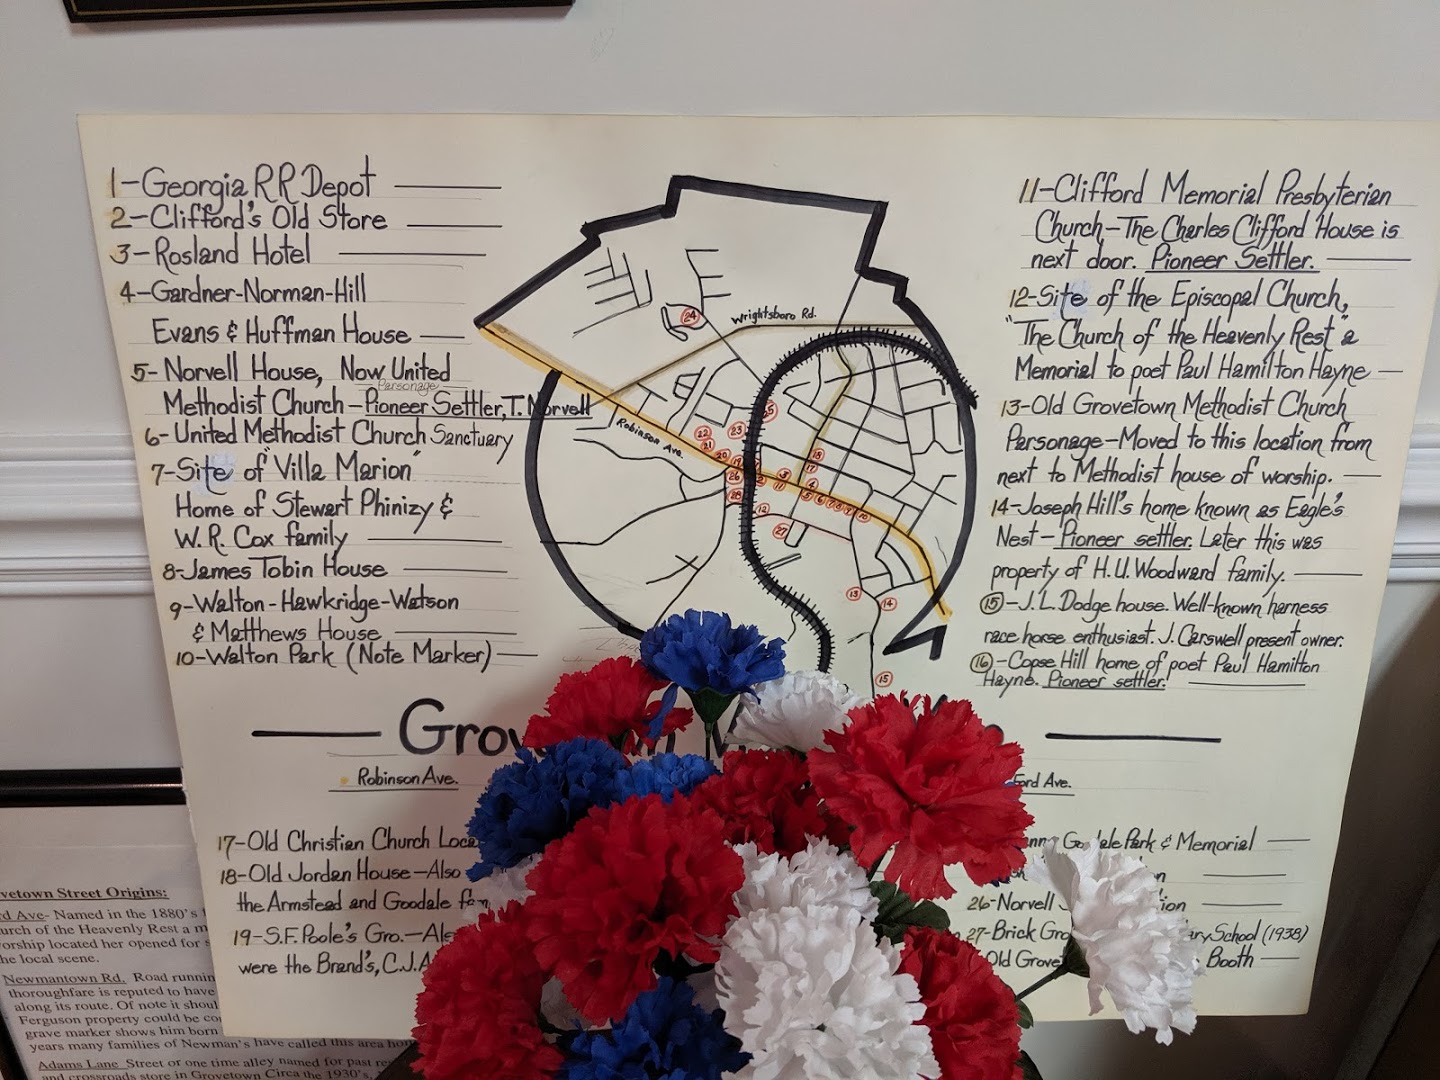 1-Georgia RR Depot
2-Clifford's Old Store
3-Rosland Hotel
4-Gardner-Norman-Hill
Evans & Huffman House
5-Norvell House, Now United
Parsonage
Methodist Church-Pioneer Settler, T. Norvell
6-United Methodist Church Sanctuary
7-Site of "Villa Marion"
Home of Stewart Phinizy &
W.R. Cox family
8-James Tobin House
9-Walton-Hawkridge-Watson
& Matthews House
10-Walton Park (Note Marker)
Wrightsboro Rd.
Robinson Ave.
24
25
22
23
21
20
19
18
17
26
28
12
27
3
11
4
5
6
10
13
14
15
11-Clifford Memorial Presbyterian
Church-The Charles Clifford House is
next door. Pioneer Settler.
12-Site of the Episcopal Church,
"The Church of the Heavenly Rest" a
Memorial to poet Paul Hamilton Hayne
13-Old Grovetown Methodist Church
Parsonage-Moved to this location from
next to Methodist house of worship.
14-Joseph Hill's home known as Eagle's
Nest-Pioneer settler. Later this was
property of H.U. Woodward family.
15-J.L. Dodge house. Well-known harness
race horse enthusiast. J. Carswell present owner.
16-Copse Hill home of poet Paul Hamilton
Hayne. Pioneer settler.
Grov
Robinson Ave.
Ford Ave.
17-Old Christian Church Loca
18-Old Jordan House-Also
the Armstead and Goodale fam
19-S.F. Poole's Gro.-Als
were the Brand's, C.J.A
Park & Memorial
26-Norvell
27-Brick Gro
ary School (1938)
Old Grove
Booth
vetown Street Origins:
rd Ave- Named in the 1880's
urch of the Heavenly Rest a m
orship located her opened for s
he local scene.
Newmantown Rd. Road running
thoroughfare is reputed to have
along its route. Of note it shoul
Ferguson property could be co
grave marker shows him born
years many families of Newman's have called this area hom
Adams Lane Street or one time alley named for past res
and crossroads store in Grovetown Circa the 1930's,